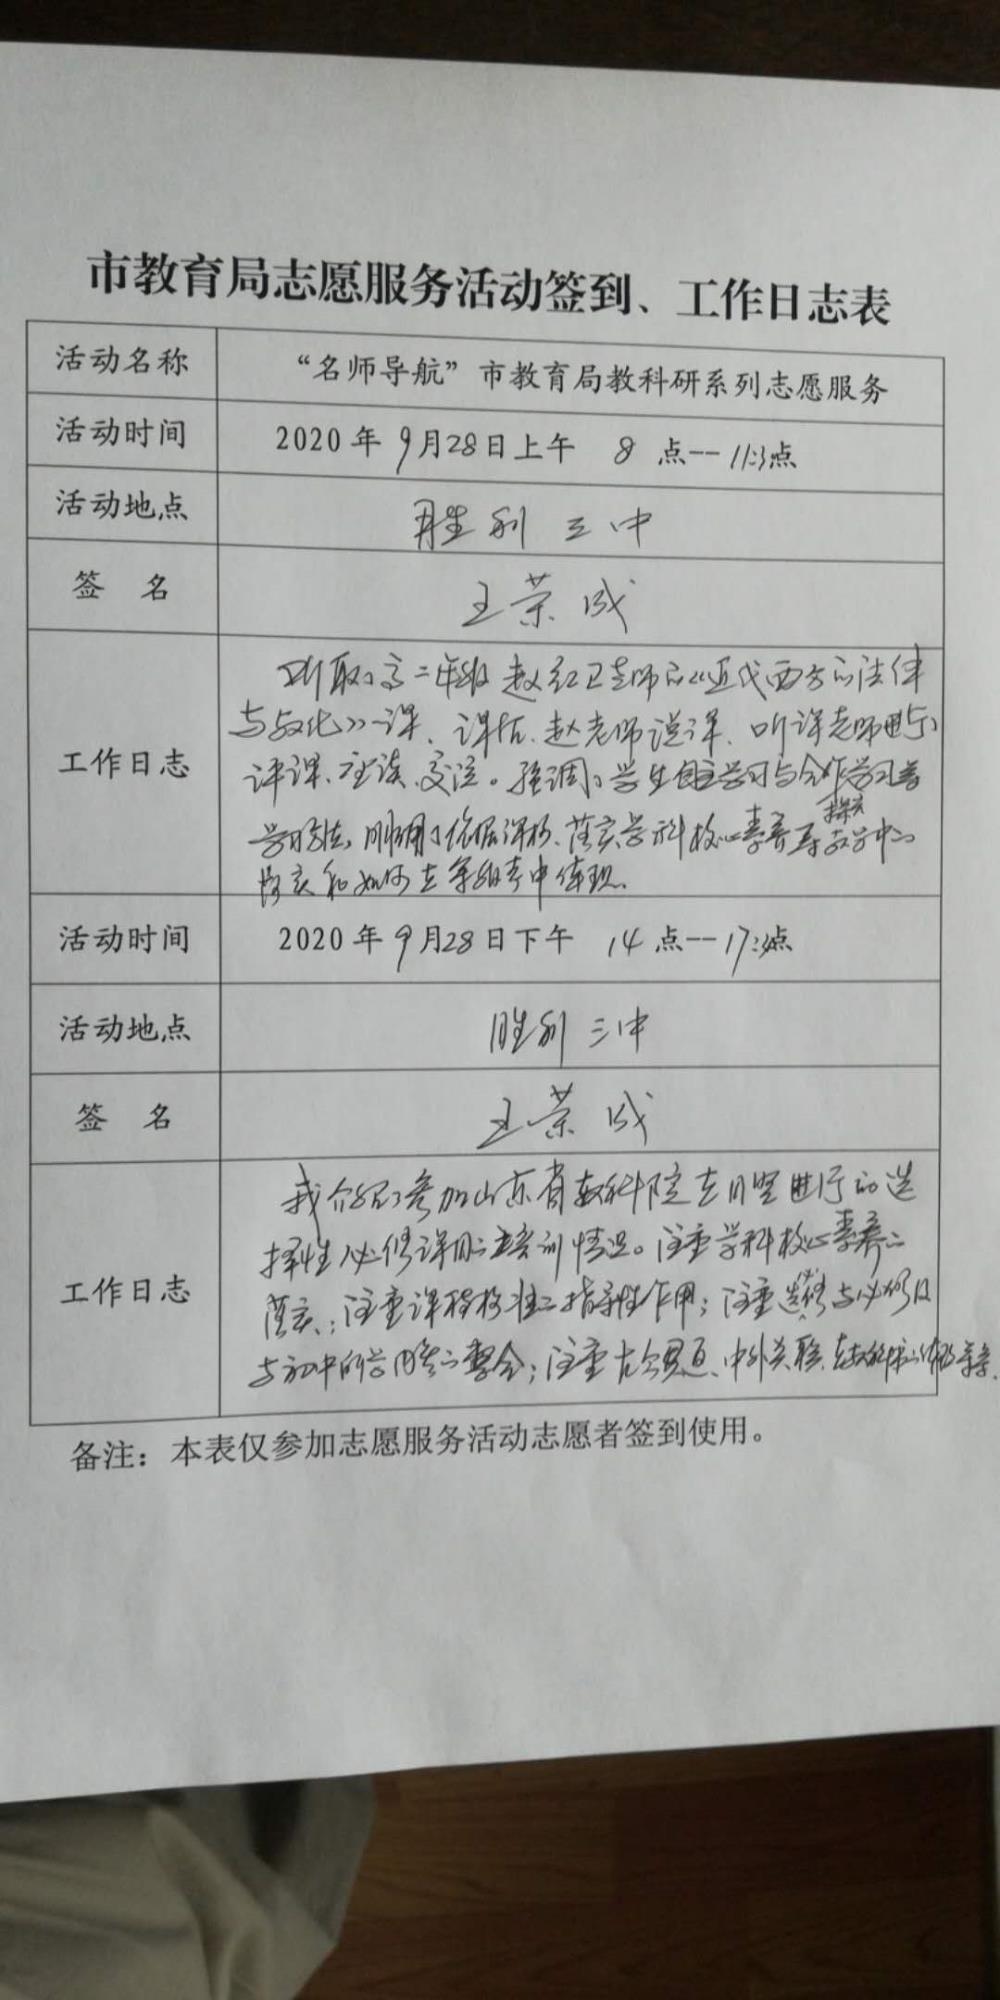 市教育局志愿服务活动签到、工作日志表
活动名称 “名师导航”市教育局教科研系列志愿服务
活动时间 2020年9月28日上午 8点--11:30点
活动地点 胜利三中
签 名 王荣成
工作日志
听取了高二年级赵红卫老师的《近代西方的法律
与教化》一课、课后、赵老师说课、听课老师进行
评课、座谈、交流。强调了学生自主学习与合作学习等
学习方法,明确了依据课标、落实学科核心素养在教学中的
落实和如何在等级考中体现。
活动时间 2020年9月28日下午 14点--17:30点
活动地点 胜利三中
签 名 王荣成
工作日志
我介绍了参加山东省教科院在日照进行的选
择性必修课目的培训情况。注重学科核心素养的
落实;注重课程标准的指导性作用;注重选修与必修以
与初中所学内容的整合;注重古今贯通、中外关联
备注：本表仅参加志愿服务活动志愿者签到使用。